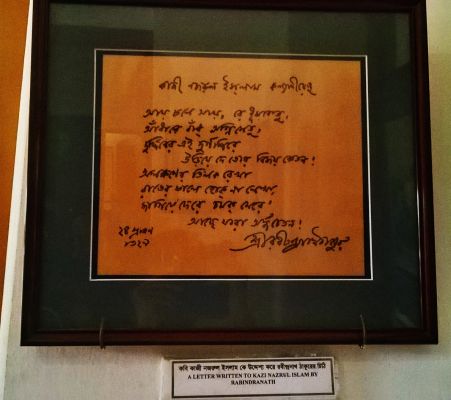 কাজী নজরুল ইসলাম কল্যাণীয়েষু
আয় চলে আয়, রে ধূমকেতু,
আঁধারে বাঁধ্ অগ্নিসেতু,
দুর্দিনের এই দুর্গশিরে
উড়িয়ে দে তোর বিজয় কেতন!
অলক্ষণের তিলক রেখা
রাতের ভালে হোক না লেখা,
জাগিয়ে দেরে চমক মেরে'
আছে যারা অর্দ্ধচেতন!
২৪ শ্রাবণ
১৩২৯
শ্রীরবীন্দ্রনাথ ঠাকুর
কবি কাজী নজরুল ইসলাম কে উদ্দেশ্য করে রবীন্দ্রনাথ ঠাকুরের চিঠি
A LETTER WRITTEN TO KAZI NAZRUL ISLAM BY
RABINDRANATH